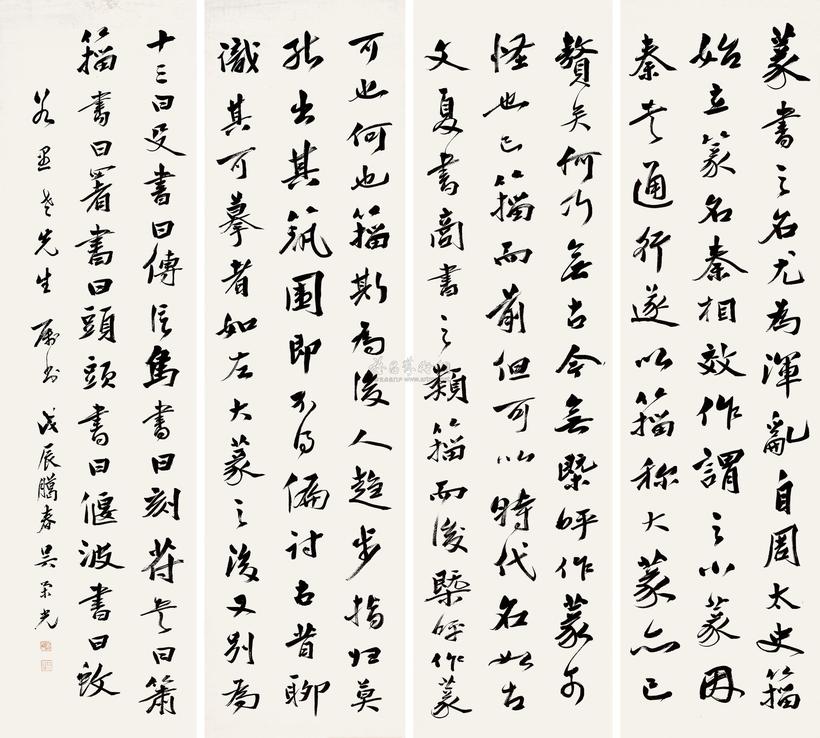 篆書之名尤為渾亂自周太史籀
始立篆名秦相效作謂之小篆毋
秦吏通行遂以籀称大篆亦已
贅矣何乃無古今無槩呼作篆可
怪也已籀而前但可以時代名如古
文夏書商書之類籀而後槩呼作篆
可也何也籀斯為後人趋步指归莫
能出其範圍即不得偏討古昔聊
識其可摹者如左大篆之後又别為
十三曰殳書曰傳信鳥書曰刻符書曰蕭
籀書曰署書曰頭頭書曰偃波書曰蚊
先生属書戊辰臈春吴荣光